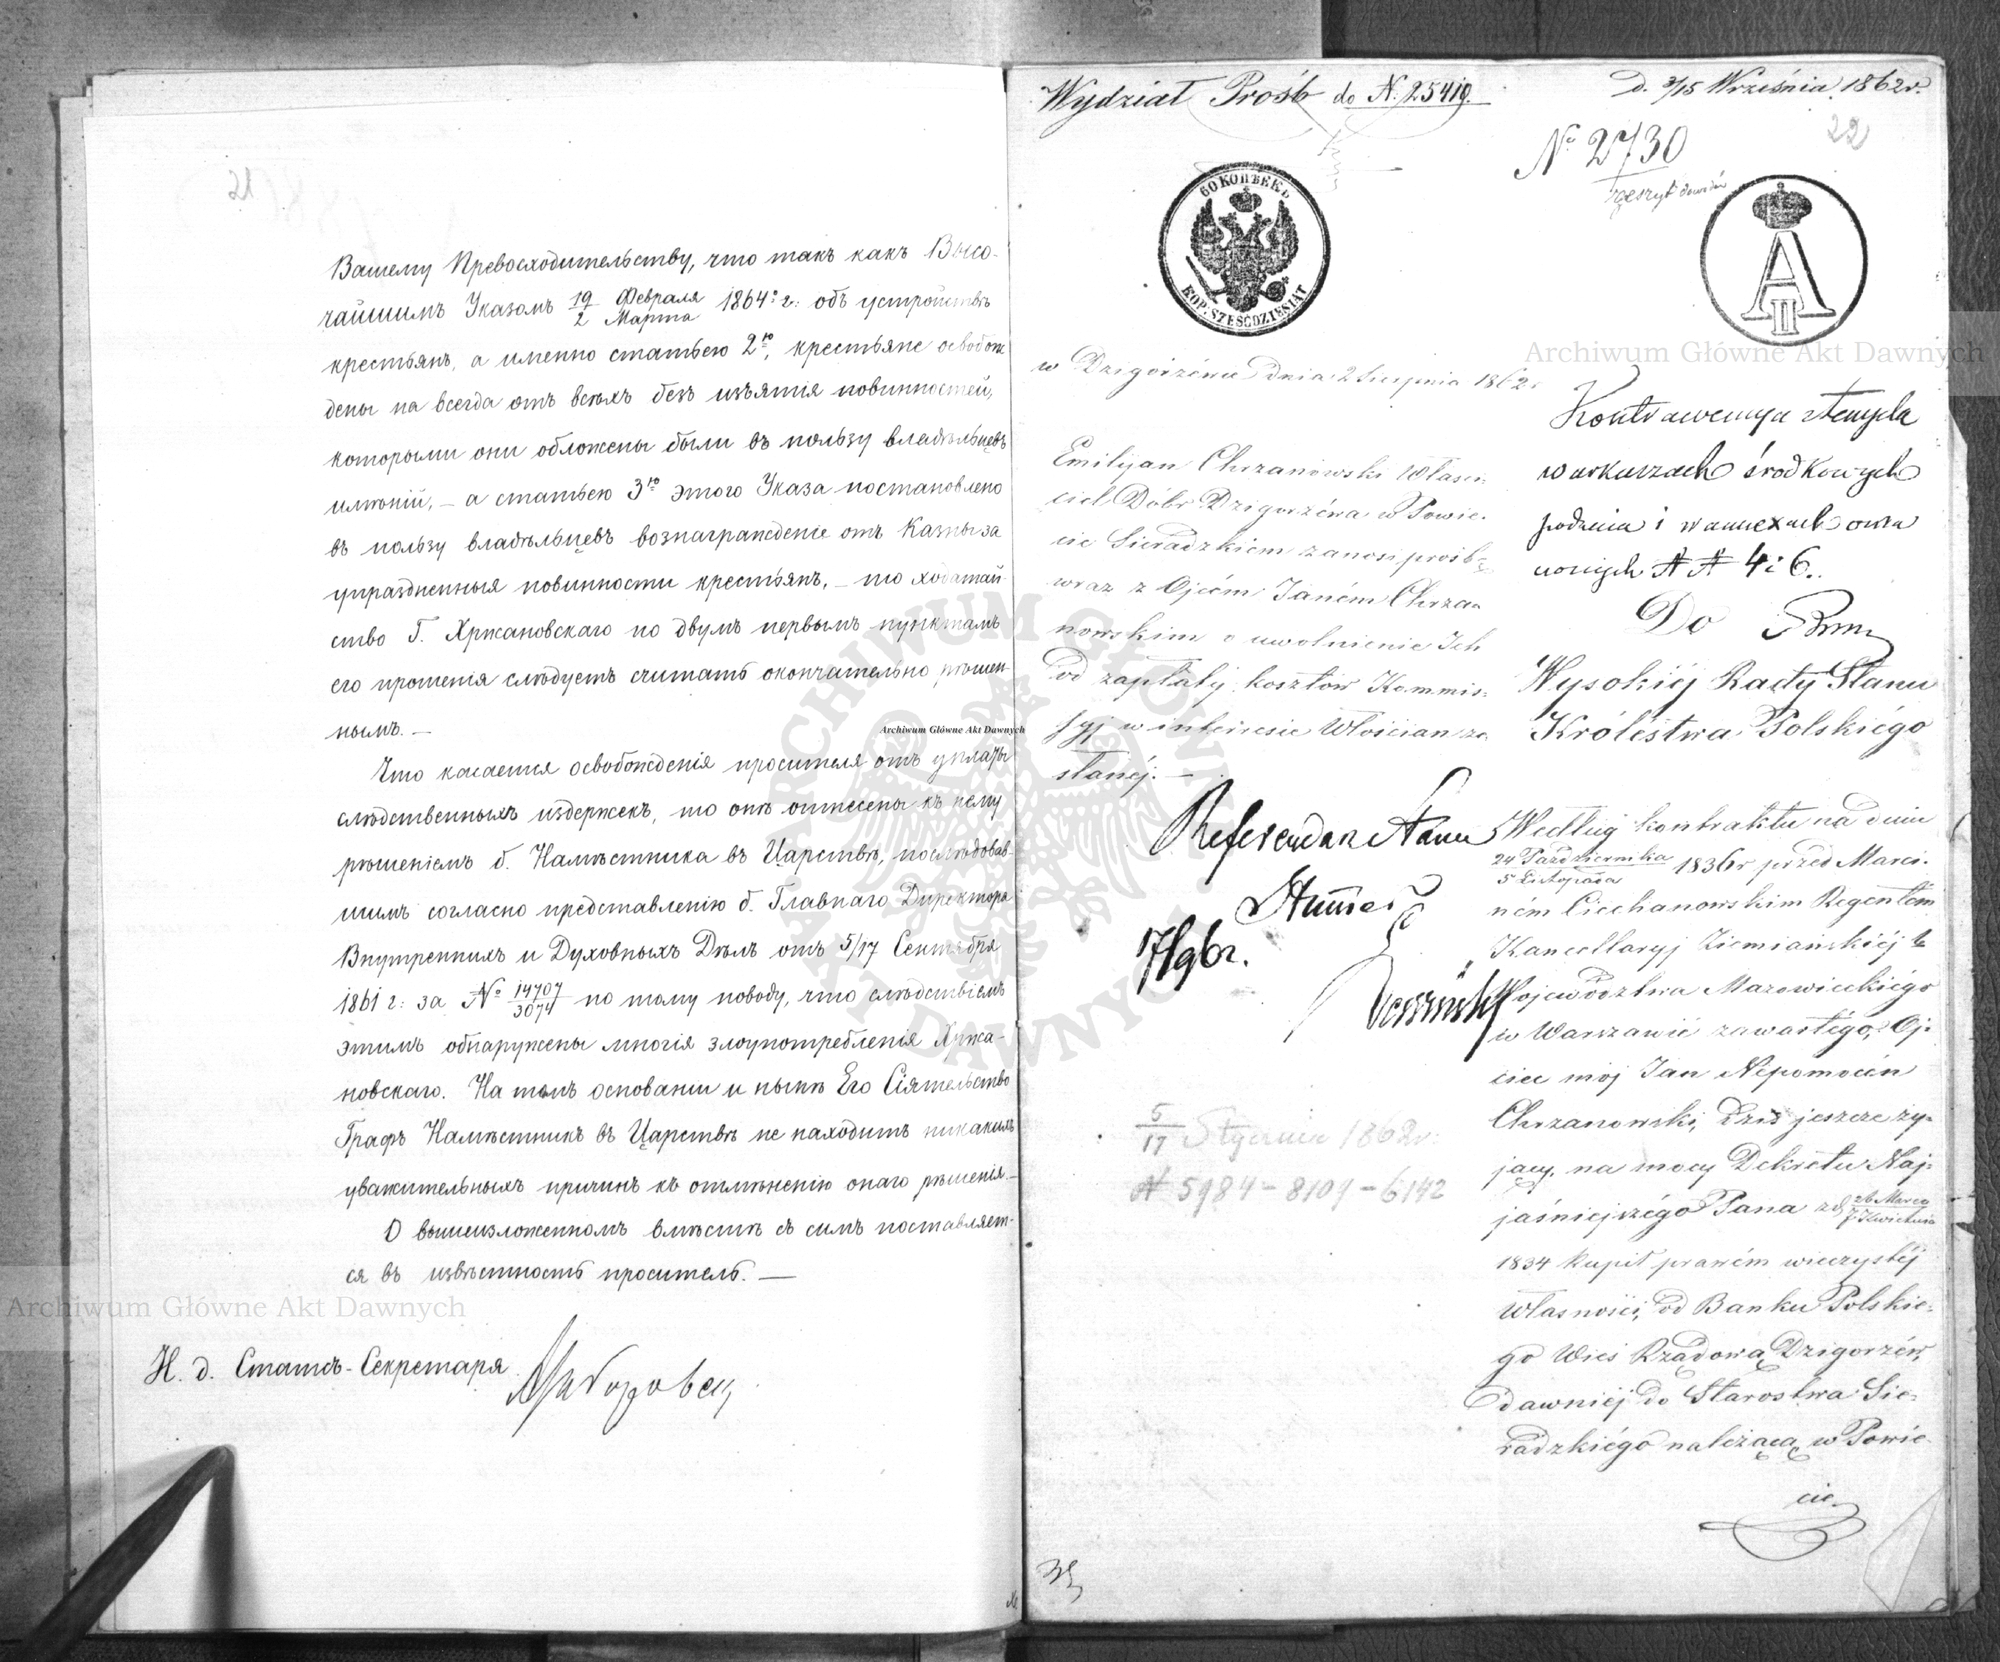 21
Вашему Превосходительству, что такъ какъ Высо-
чайшимъ Указомъ 19 Февраля / 2 Марта 1864 г: объ устройствѣ
крестьянъ, а именно статьею 2ю, крестьяне освобож
дены на всегда отъ всѣхъ безъ изъятія повинностей,
которыми они обложены были въ пользу владѣльцевъ
имѣній, – а статьею 3ю этого Указа постановлено
въ пользу владѣльцевъ вознагражденіе отъ Казны за
упраздненныя повинности крестьянъ, – то ходатай-
ство Г. Хржановскаго по двумъ первымъ пунктамъ
его прошенія слѣдуетъ считать окончательно рѣшен-
нымъ. –
Что касается освобожденія просителя отъ уплаты
слѣдственныхъ издержекъ, то онѣ отнесены къ нему
рѣшеніемъ б. Намѣстника въ Царствѣ, послѣдовав-
шимъ согласно представленію б. Главнаго Директора
Внутреннихъ и Духовныхъ Дѣлъ отъ 5/17 Сентября
1861 г: за № 14707/3074 по тому поводу, что слѣдствіемъ
этимъ обнаружены многія злоупотребленія Хржа-
новскаго. На томъ основаніи и нынѣ Его Сіятельство
Графъ Намѣстникъ въ Царствѣ не находитъ никакихъ
уважительныхъ причинъ къ отмѣненію онаго рѣшенія. –
О вышеизложенномъ вмѣстѣ съ симъ поставляет-
ся въ извѣстность проситель. –
И. д. Статсъ-Секретаря
Wydział Próśb do N. 25419.
D. 3/15 Września 1862 r.
22
№ 2730
60 КОПѢЕКЪ
KOP. SZEŚĆDZIESIĄT
A II
w Dzigorzéwie dnia 2 Sierpnia 1862 r
Emilijan Chrzanowski Właści-
ciel Dóbr Dzigorzéwa w Powie-
cie Sieradzkiem zanosi prośbę
wraz z Ojcem Janem Chrza-
nowskim o uwolnienie Ich
od zapłaty kosztów Kommis-
syj w interesie Włościan ze
słanéj. –
Referendarz Stanu
17 9br.
5/17 Stycznia 1862 r.
N 5984 – 8109 – 6142
Kontrawencya stempla
w arkuszach środkowych
podania i w annexach ozna
czonych A A 4 i 6.
Do
Wysokiéj Rady Stanu
Królestwa Polskiégo
Według kontraktu na dniu
24 Października / 5 Listopada 1836 r przed Marci-
ném Ciechanowskim Regentem
Kancellaryj Ziemiańskiéj b
Województwa Mazowieckiégo
w Warszawie zawartégo, Oj-
ciec mój Jan Nepomucén
Chrzanowski, dziś jeszcze ży-
jący, na mocy Dekretu Naj-
jaśniejszégo Pana z d 26 Marca / 7 Kwietnia
1834 kupił prawém wieczystéj
Własności, od Banku Polskie-
go Wieś Rządową Dzigorzéw,
dawniéj do Starostwa Sie-
radzkiégo należącą w Powie-
cie
Archiwum Główne Akt Dawnych
Archiwum Główne Akt Dawnych
Archiwum Główne Akt Dawnych
ARCHIWUM GŁÓWNE AKT DAWNYCH